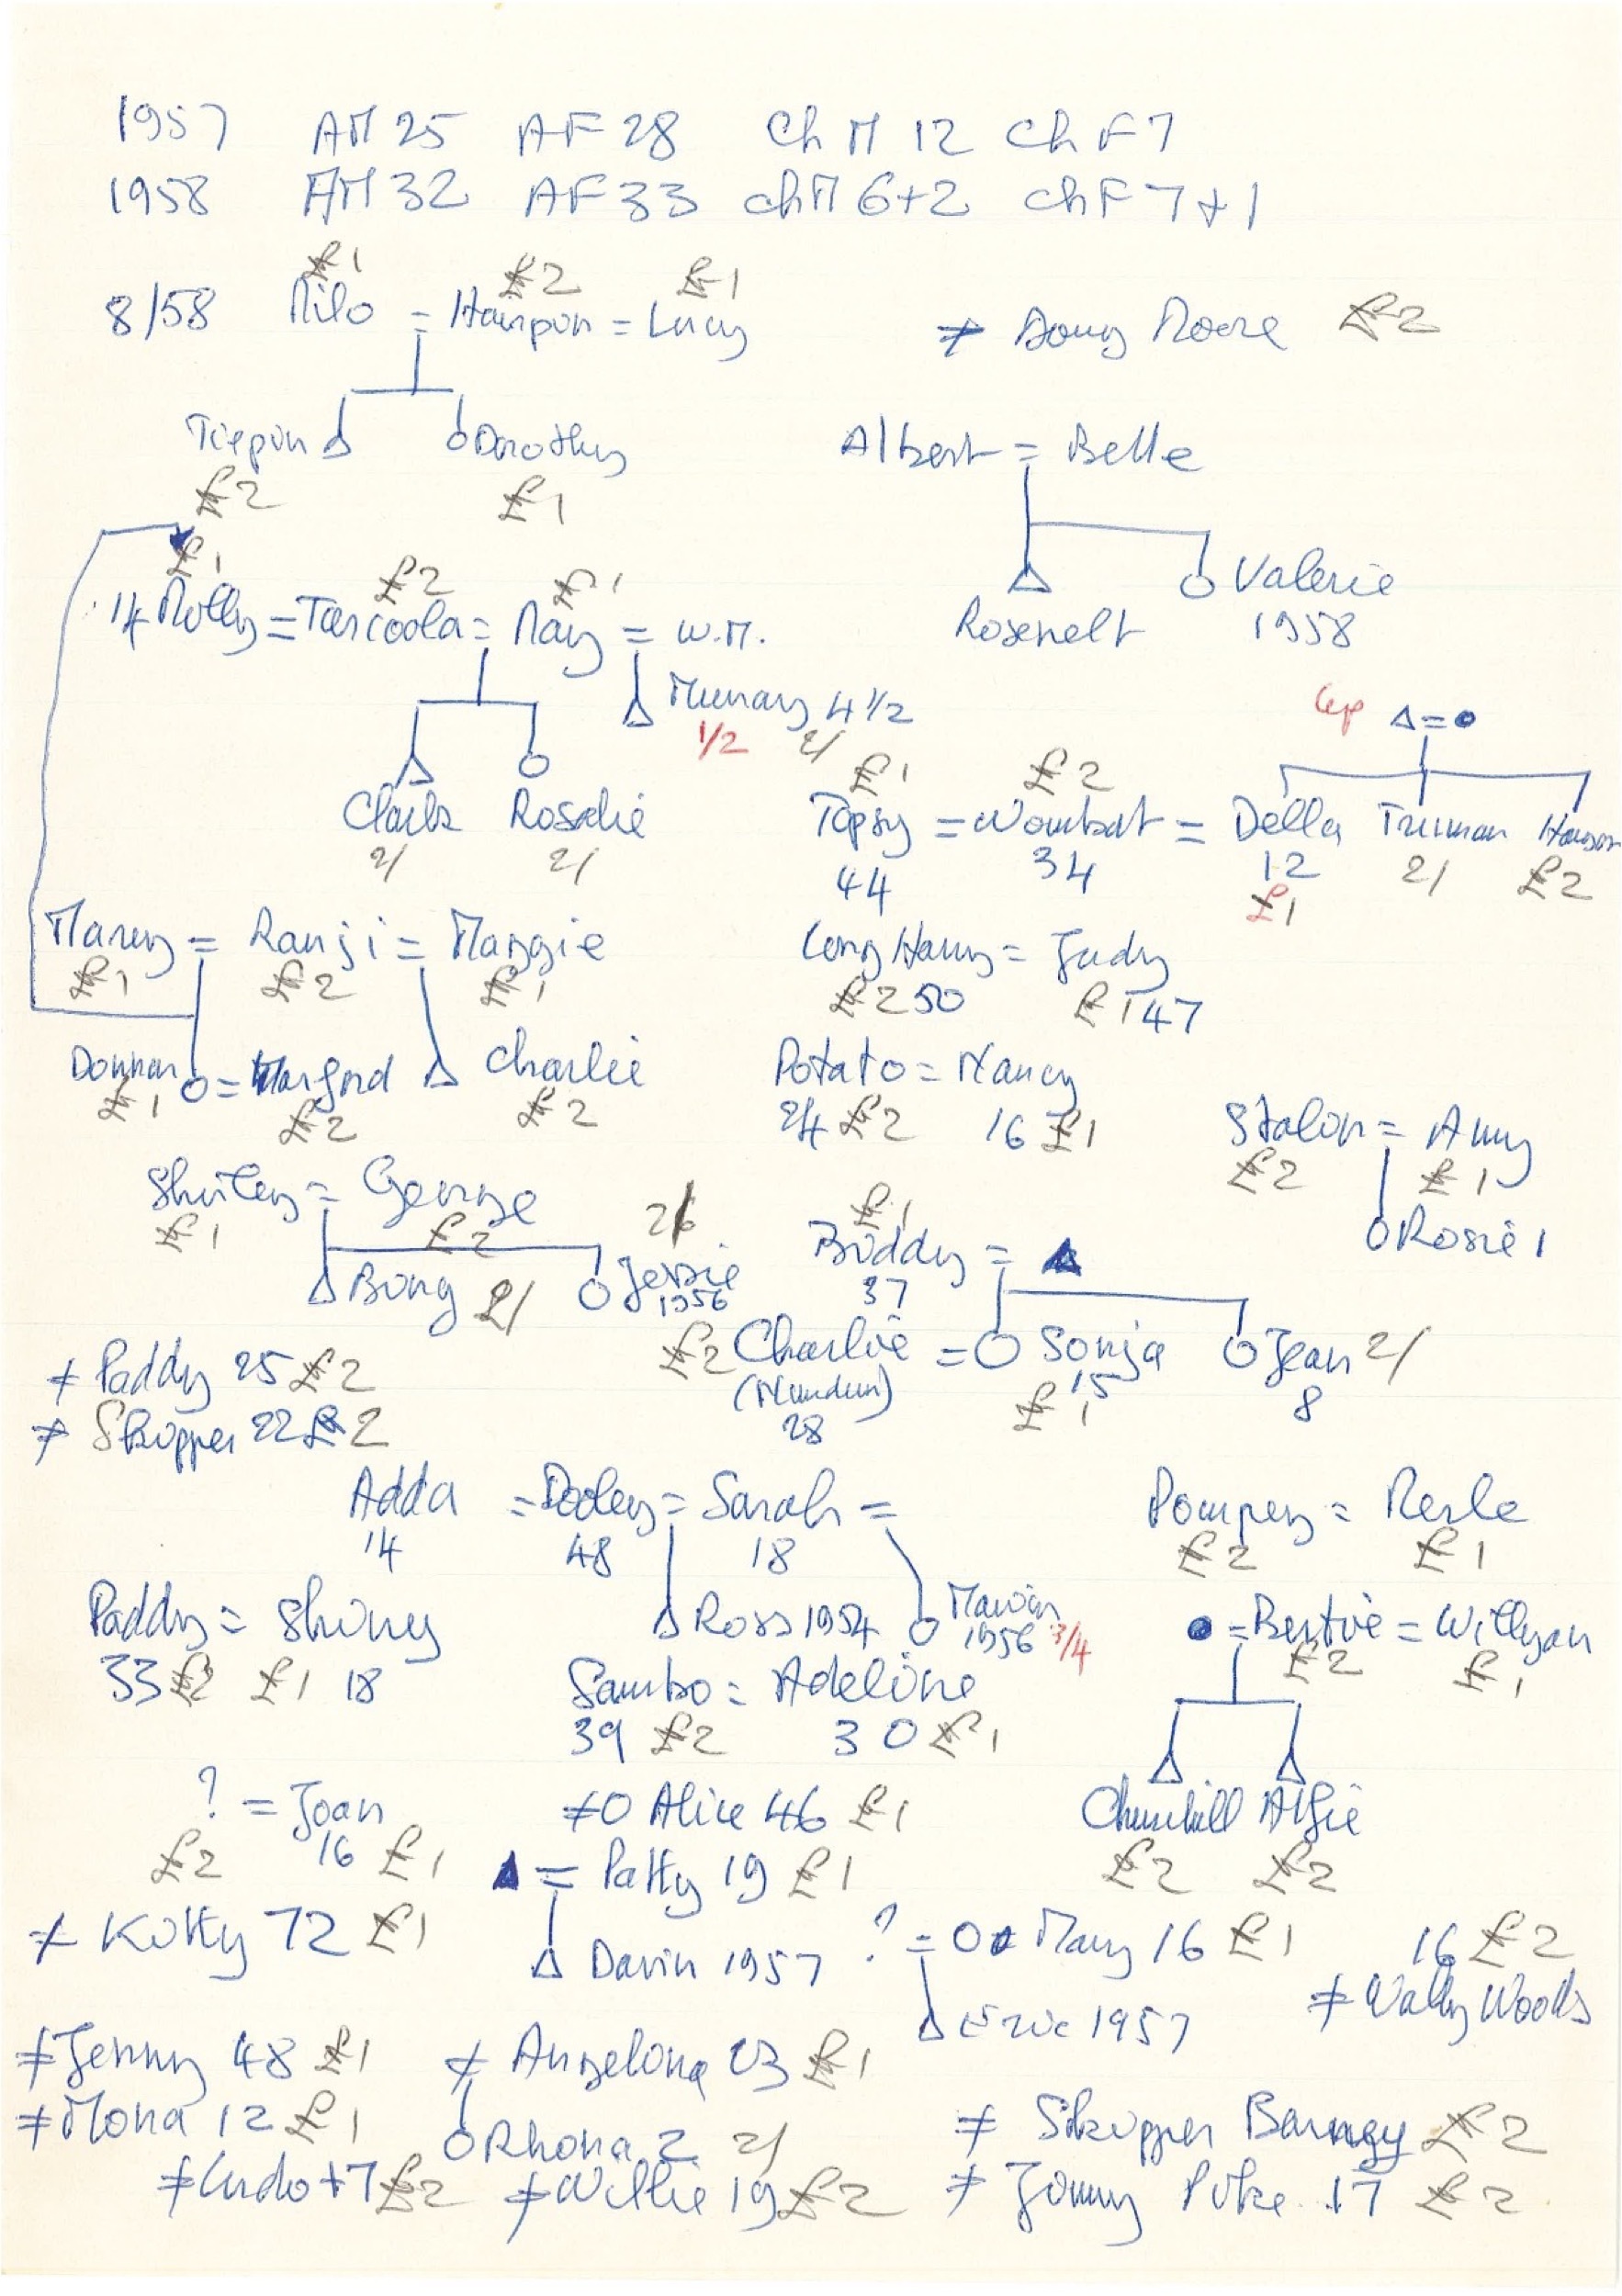 1957 AM 25 AF 28 Ch M 12 Ch F 7
1958 AM 32 AF 33 ChM 6+2 ChF 7+1
£1 £2 £1
8/58 Milo = Hairpin = Lucy ≠ Doug Moore £2
Tiepin Dorothy
£2 £1
Albert = Belle
Rosevelt Valerie
1958
£1 £2 £1
14 Molly = Tarcoola = May = W.M.
Murray 4 1/2
1/2 2/
Clark Rosalie
2/ 2/
Lep =
£1 £2
Topsy = Wombat = Della Truman
44 34 12 2/ £2
£1
Maray = Ranji = Maggie
£1 £2 £1
Long Harry = Judy
£2 50 £1 47
= Charlie
£1 £2 £2
Potato = Nancy
24 £2 16 £1
Stalin = Amy
£2 £1
Rosie 1
Shirley = George
£1 £2
Bong 2/ Jessie 2/
1956
£1
Biddy =
37
£2 Charlie = Sonja Jean 2/
(Nundun) 15 8
28 £1
≠ Paddy 25 £2
≠ Skipper 22 £2
Adda = Dooley = Sarah =
14 48 18
Ross 1954 Marion
1956 3/4
Pompey = Merle
£2 £1
Paddy = Shiney
33 £2 £1 18
= Bertie = Willyan
£2 £1
Sambo = Adeline
39 £2 30 £1
Churchill Alfie
£2 £2
? = Joan
£2 16 £1
≠ Alice 46 £1
= Patty 19 £1
Davin 1957
≠ Kitty 72 £1
? = Mary 16 £1
Eric 1957
16 £2
≠ Wally Woods
≠ Jenny 48 £1 ≠ Angelina 23 £1
≠ Mona 12 £1 Rhona 2 2/ ≠ Skipper Barney £2
≠ Ludo +7 £2 ≠ Willie 19 £2 ≠ Jonny Pike 17 £2